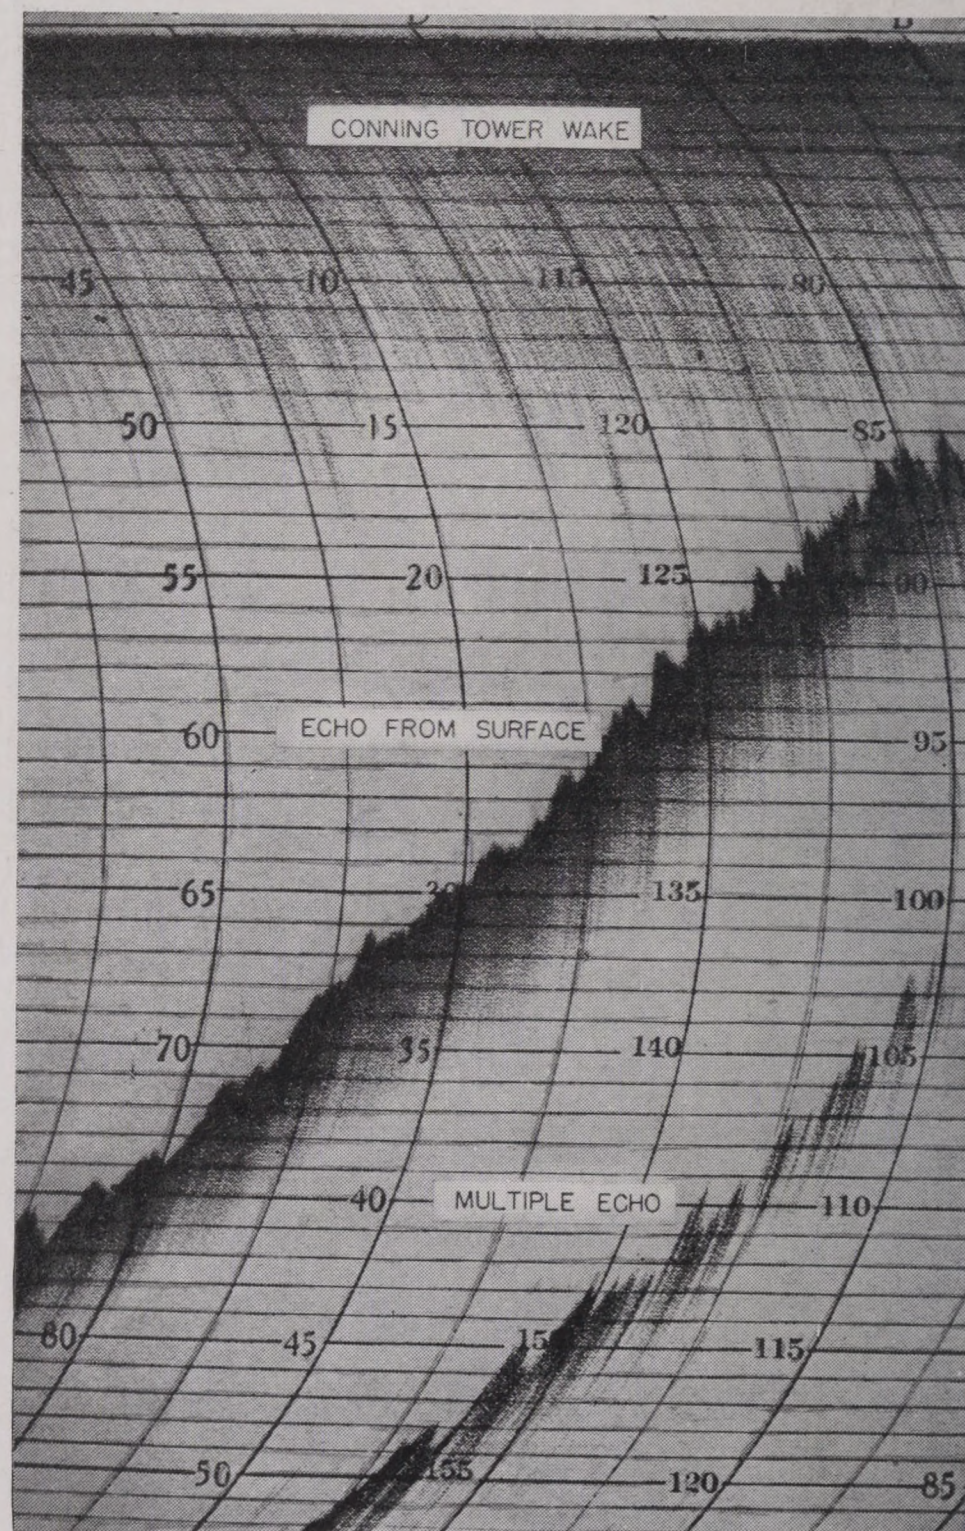 D C B
CONNING TOWER WAKE
45 10 115 80
50 15 120 85
55 20 125 90
ECHO FROM SURFACE
60 95
65 30 135 100
70 35 140 105
40 MULTIPLE ECHO 110
80 45 115
50 155 120 85